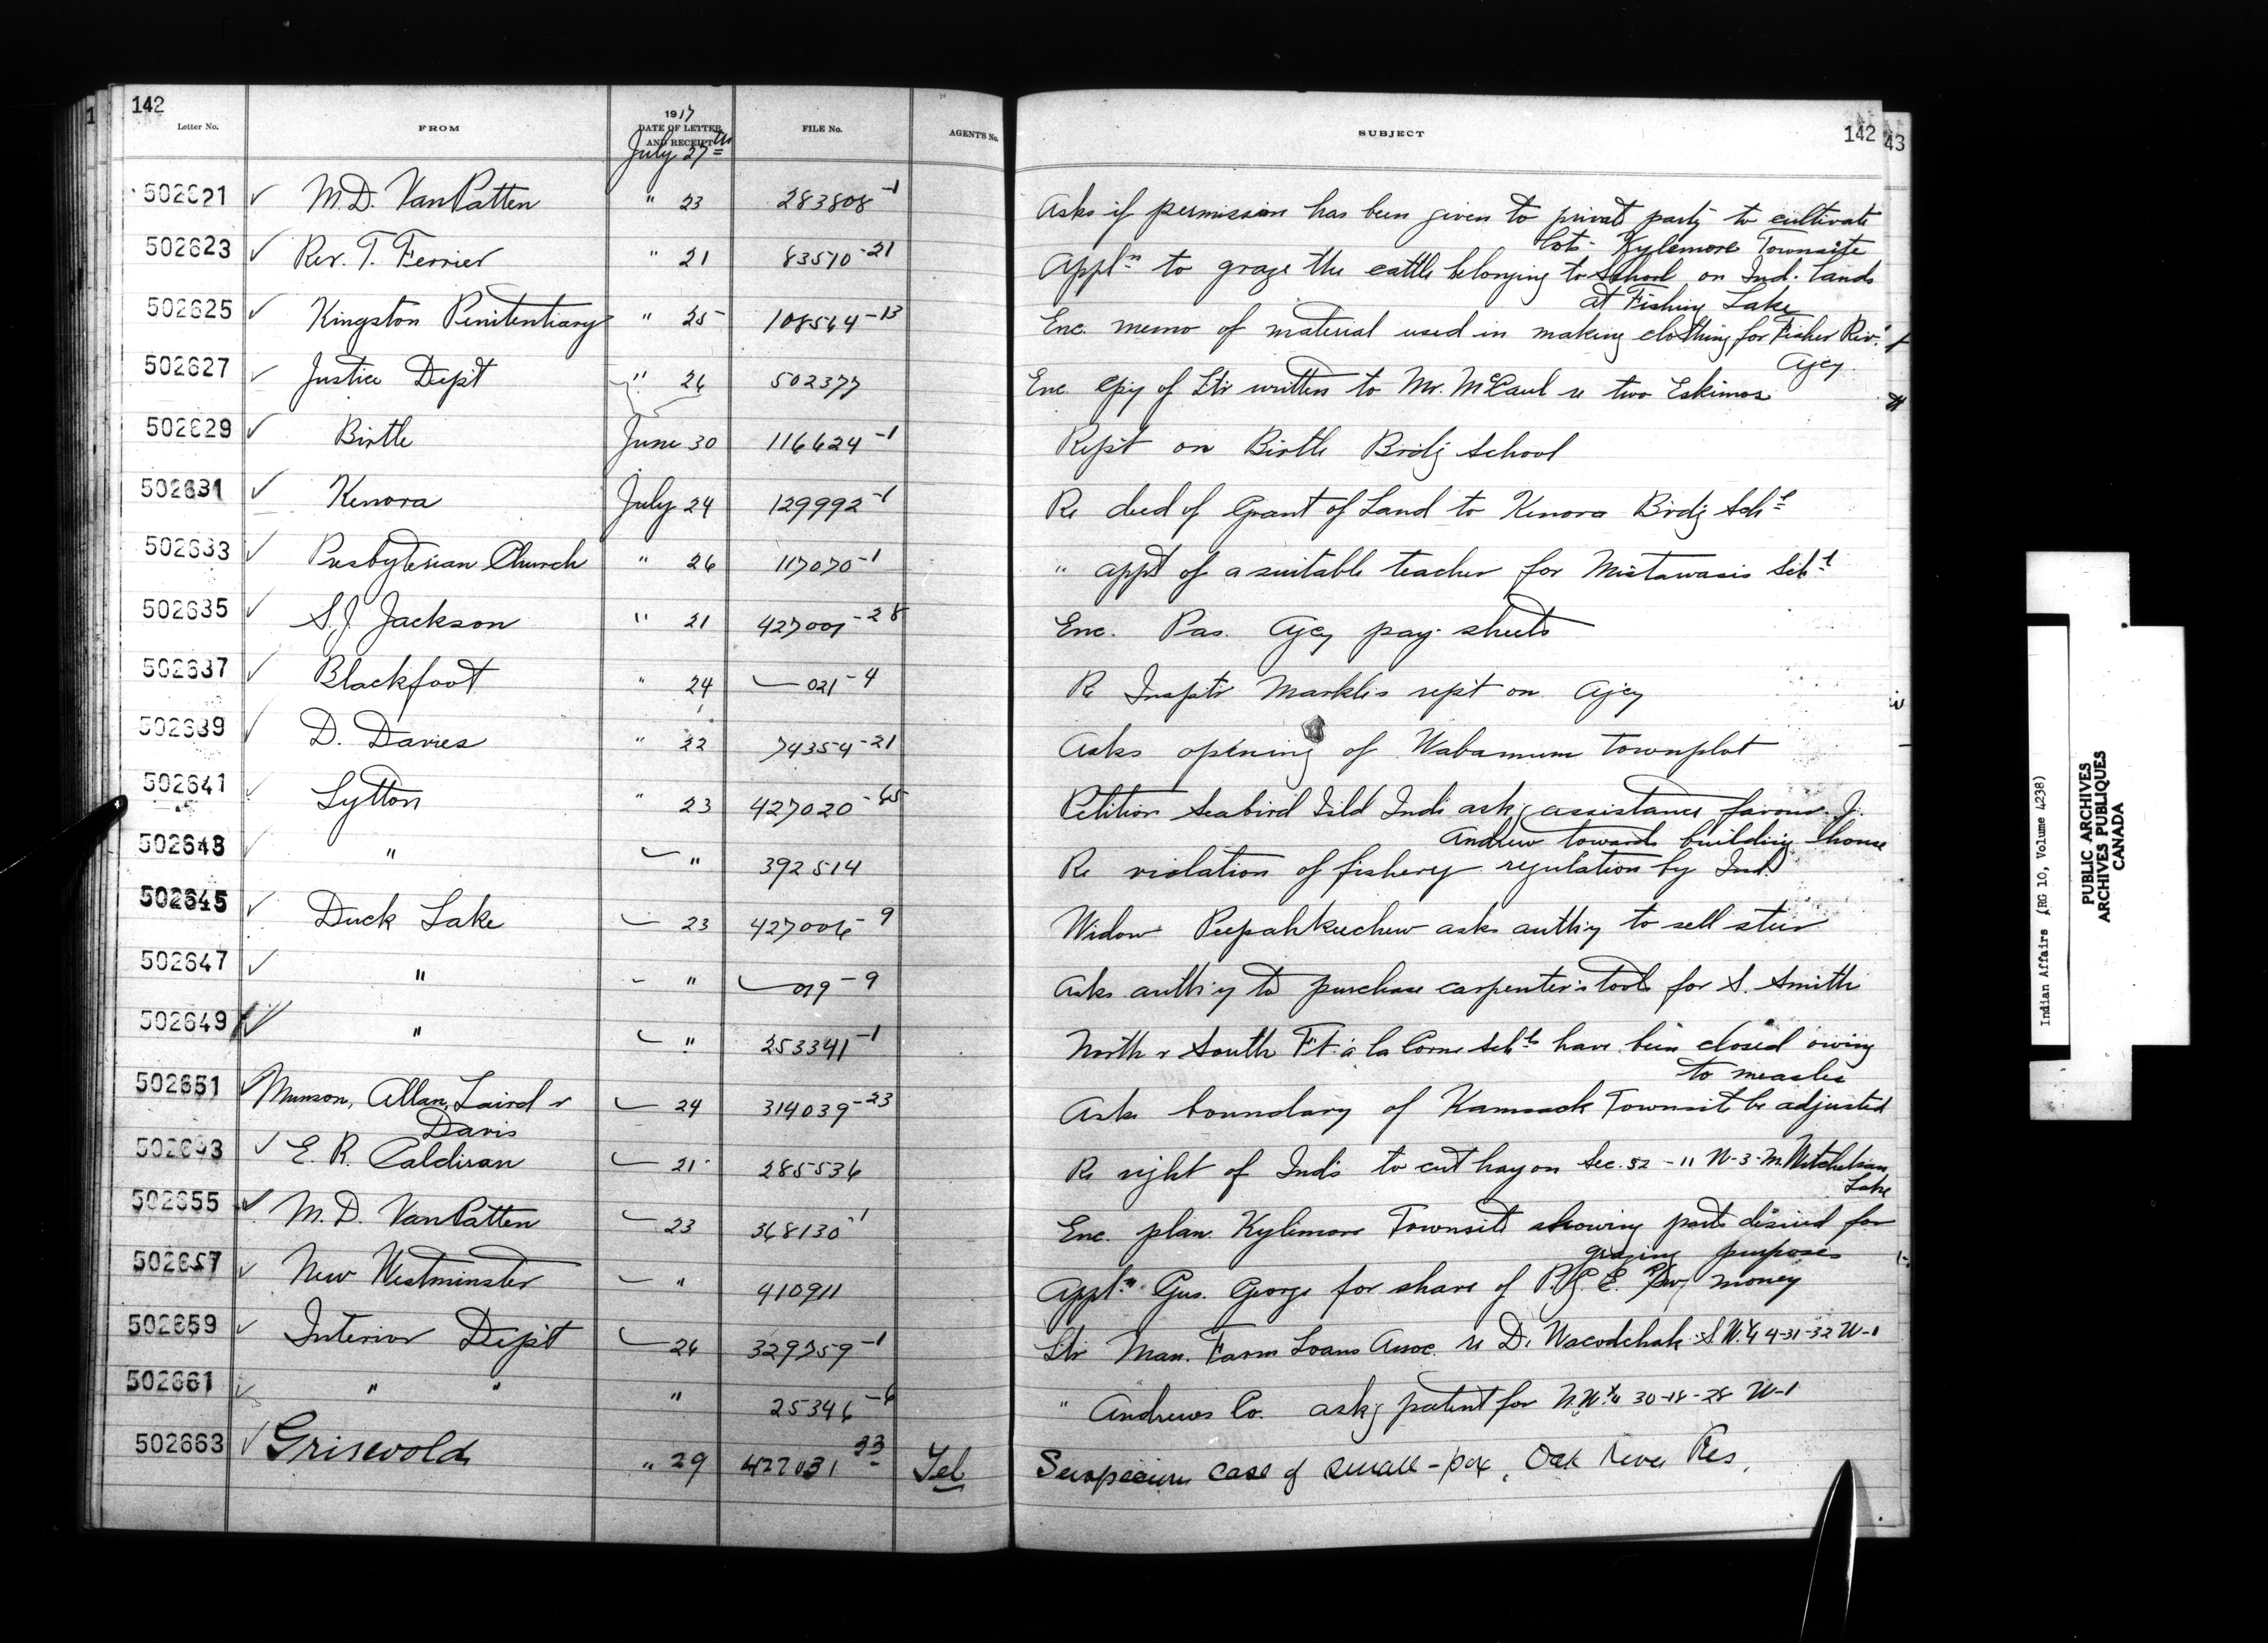 142
Letter No. FROM 1917 DATE OF LETTER AND RECEIPT FILE No. AGENT'S No. SUBJECT 142 43
July 27th
502621 M.D. VanPatten " 23 283808-1 Asks if permission has been given to private party to cultivate
lots - Kylemore Townsite
502623 Rev. T. Ferrier " 21 83570-21 Appln to graze the cattle belonging to School on Ind. Lands
at Fishing Lake
502625 Kingston Penitentiary " 25 108564-13 Enc memo of material used in making clothing for Fisher Riv.
Agcy.
502627 Justice Dep't " 26 502377 Enc. cpy of Ltr written to Mr. McCaul re two Eskimos
502629 Birtle June 30 116624-1 Rep't on Birtle Brdg School
502631 Kenora July 24 129992-1 Re deed of Grant of Land to Kenora Brdg Schl
502633 Presbyterian Church " 26 117070-1 " appt of a suitable teacher for Mistawasis Schl
502635 S.J. Jackson " 21 427001-28 Enc. Pas. Agcy pay-sheets
502637 Blackfoot " 24 021-4 Re Insptr Markle's rep't on Agcy
502639 D. Davies " 22 74354-21 Asks opening of Wabamum Townplot
502641 Lytton " 23 427020-65 Petition Seabird Isld Inds askg assistance favour J.
Andrew towards building house
502643 " " 392514 Re violation of fishery regulation by Ind.
502645 Duck Lake 23 427006-9 Widow Peepahkeechew asks auth'y to sell steer
502647 " " 019-9 Asks auth'y to purchase carpenter's tools for S. Smith
502649 " " 253341-1 North & South Ft. à la Corne Schls have been closed owing
to measles
502651 Munson, Allan, Laird & 24 314039-23 Asks boundary of Kamsack Townsite be adjusted
Davis
502653 E. R. Caldiran 21 285536 Re right of Inds to cut hay on Sec. 52 - 11 W-3-M. Mitchelson
Lake
502655 M.D. VanPatten 23 368130-1 Enc. plan Kylemore Townsite showing parts desired for
grazing purposes
502657 New Westminster " 410911 Appln Gus. George for share of P.G.E. Rwy money
502659 Interior Dep't 26 329759-1 Ltr Man. Farm Loans Assoc. re D. Wacodchak S.W.¼ 4-31-32 W-1
502661 " " " 25346-6 " Andrews Co. askg patent for N.W.¼ 30-18-28 W-1
502663 Griswold " 29 427031-33 Tel Suspicious case of small-pox, Oak River Res.
Indian Affairs (RG 10, Volume 4238)
PUBLIC ARCHIVES
ARCHIVES PUBLIQUES
CANADA